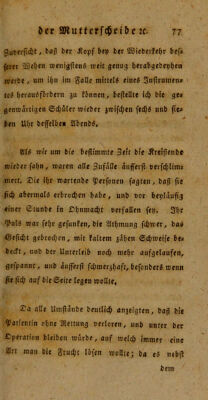 der Mutterscheide ꝛc. 77
Zuversicht, daß der Kopf bey der Wiederkehr bes-
serer Wehen wenigstens weit genug herabgedeyhen
werde, um ihn im Falle mittels eines Instrumen-
tes herausfördern zu können, bestellte ich die ge-
genwärtigen Schüler wieder zwischen sechs und sie-
ben Uhr desselben Abends.
Als wir um die bestimmte Zeit die Kreißende
wieder sahn, waren alle Zufälle äusserst verschlim-
mert. Die ihr wartende Personen sagten, daß sie
sich abermals erbrochen habe, und vor beyläufig
einer Stunde in Ohnmacht verfallen sey. Ihr
Puls war sehr gesunken, die Athmung schwer, das
Gesicht gebrochen, mit kaltem zähen Schweise be-
deckt, und der Unterleib noch mehr aufgelaufen,
gespannt, und äusserst schmerzhaft, besonders wenn
sie sich auf die Seite legen wollte.
Da alle Umstände deutlich anzeigten, daß die
Patientin ohne Rettung verloren, und unter der
Operation bleiben würde, auf welch immer eine
Art man die Frucht lösen wollte; da es nebst
dem